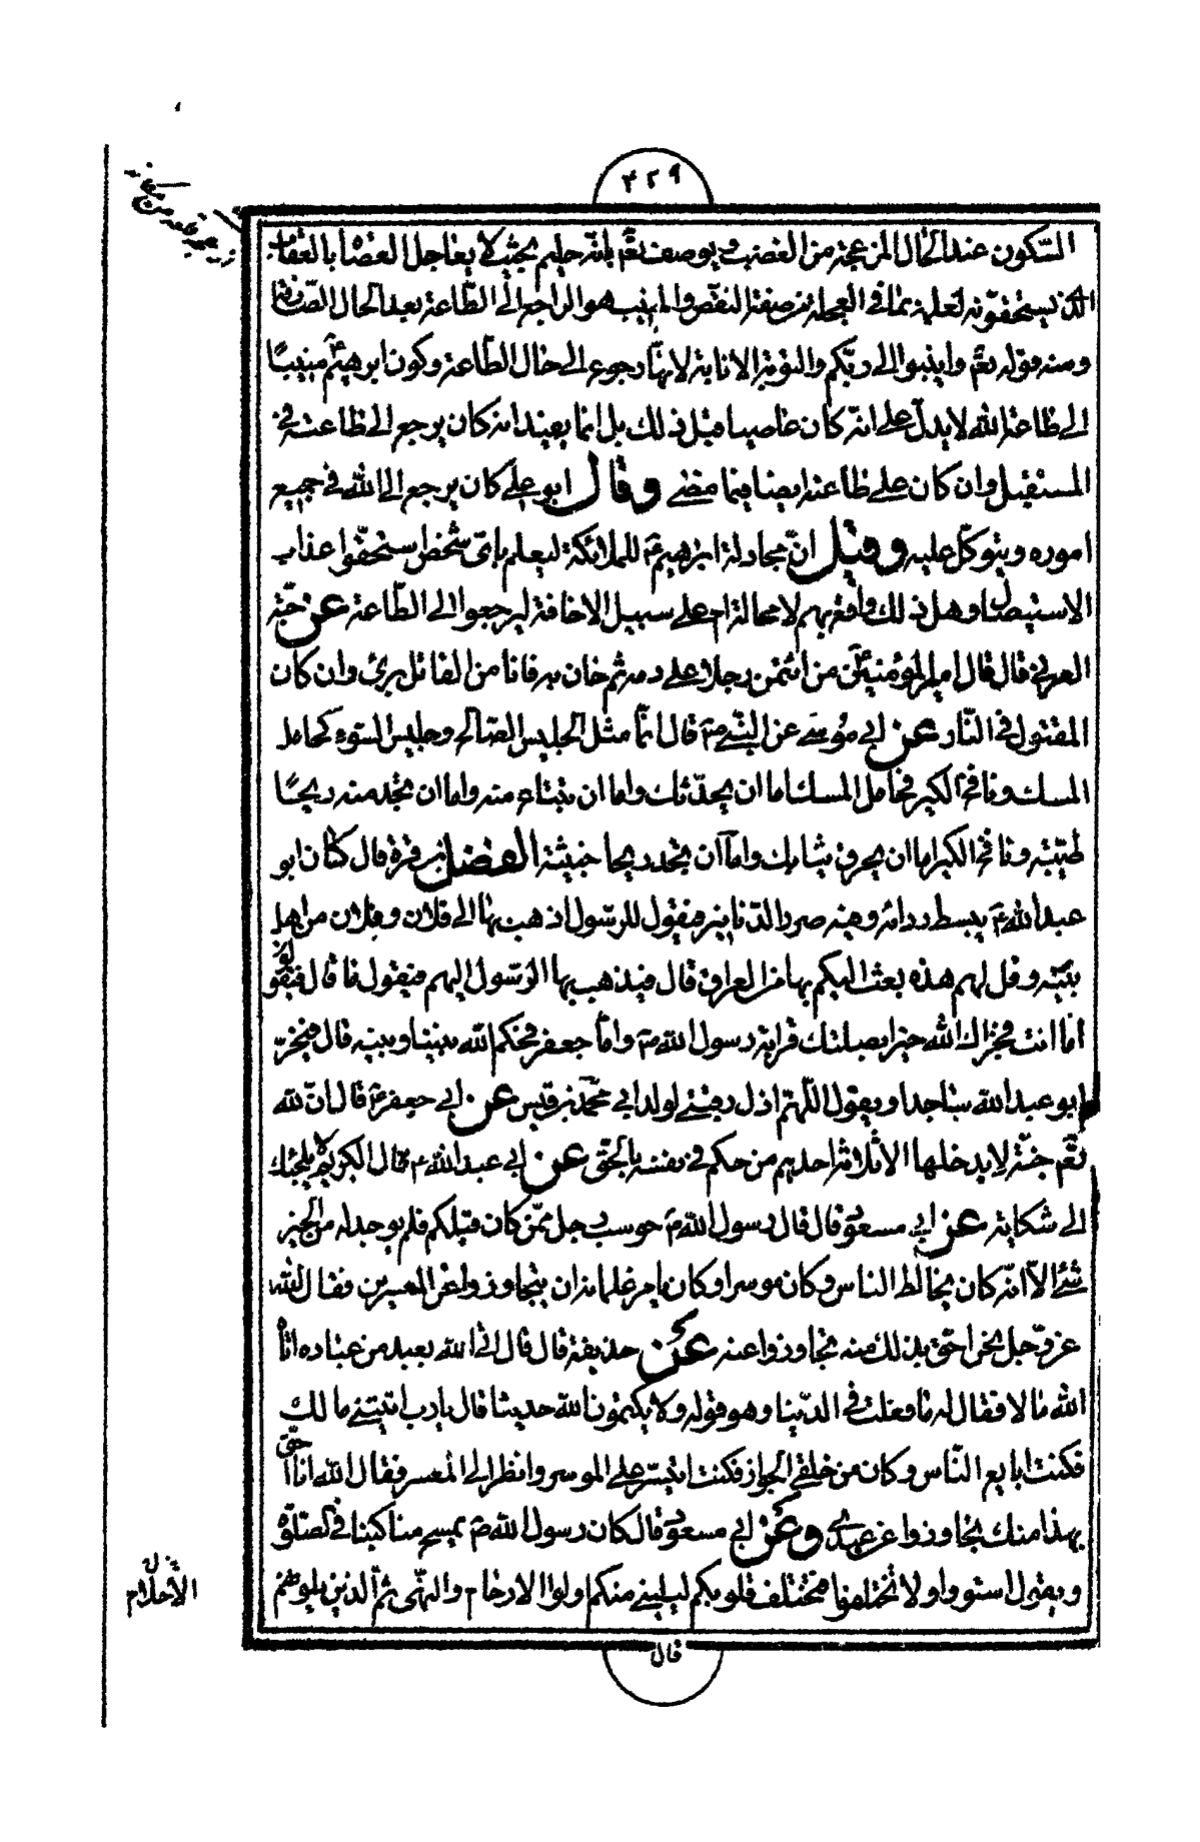 ٤٢٩
السّكون عند الحال المزعجة من الغضب ويوصف تعٓ بانّه حليم بحيث لا يعاجل العصاة بالعقاب
الذى يستحقونه لعلمه بما فى العجلة من صفة النقص والمنيب هو الراجع الى الطّاعة بعد الحال الصّارفة
ومنه قوله تعٓ وانيبوا الى ربّكم والتوبة الانابة لانّها رجوع الى حال الطّاعة وكون ابرهيمٓ منيبًا
الى طاعة الله لا يدلّ على انّه كان عاصيا قبل ذلك بل انما يفيد انه كان يرجع الى طاعته فى
المستقبل وان كان على طاعته ايضا فيما مضى وقال ابو على كان يرجع الى الله فى جميع
اموره ويتوكّل عليه وقيل انّ مجادلة ابرهيمٓ للملائكة ليعلم باىّ شىء استحقّوا عذاب
الاستيصال وهل ذلك واقع بهم لا محالة ام على سبيل الاخافة ليرجعوا الى الطّاعة عن حبّة
العرنى قال قال امير المؤمنينٓ من ائتمن رجلا على دمه ثم خان به فانا من القاتل برىء وان كان
المقتول فى النّار عن ابى موسى عن النبىّ صٓ قال انّما مثل الجليس الصّالح وجليس السّوء كحامل
المسك ونافخ الكير فحامل المسك اما ان يحذيك واما ان تبتاع منه واما ان تجد منه ريحًا
طيّبة ونافخ الكير اما ان يحرق ثيابك واما ان تجد ريحا خبيثة الفضل بن قرة قال كان ابو
عبد اللهٓ يبسط ردائه وفيه صرر الدّنانير فيقول للرّسول اذهب بها الى فلان وفلان من اهل
بيته وقل لهم هذه بعث اليكم بها من العراق قال فيذهب بها الرّسول اليهم فيقول ما قال فيقولون
اما انت فجزاك الله خيرا بصلتك قرابة رسول الله صٓ واما جعفر فحكم الله بيننا وبينه قال فيخرّ
ابو عبد الله ساجدا ويقول اللّهمّ اذلّ رقبتى لولد ابى محمّد بن قيس عن ابى جعفرٓ قال انّ لله
تعٓ جنّة لا يدخلها الا ثلاثة احدهم من حكم فى نفسه بالحقّ عن ابى عبد اللهٓ قال الكريم لا يلجئك
الى شكاية عن ابى مسعود قال قال رسول الله صٓ حوسب رجل ممّن كان قبلكم فلم يوجد له من الخير
شئ الاّ انّه كان يخالط الناس وكان موسرا وكان يامر غلمانه ان يتجاوزوا عن المعسرين فقال الله
عزّ وجل نحن احقّ بذلك منه تجاوزوا عنه عن حذيفة قال قال اتى الله بعبد من عباده اتاه
الله مالا فقال له ما فعلت فى الدّنيا وهو قوله ولا يكتمون الله حديثا قال يا رب اتيتنى مالك
فكنت ابايع النّاس وكان من خلقى الجواز فكنت ايسّر على الموسر وانظر الى المعسر فقال الله انا احقّ
بهذا منك تجاوزوا عن عبدى وعن ابى مسعود قال كان رسول الله صٓ يمسح مناكبنا فى الصّلوة
ويقول استووا ولا تختلفوا فتختلف قلوبكم ليلينى منكم اولوا الارحام والنّهى ثمّ الذين يلونهم
الاحلام
قال